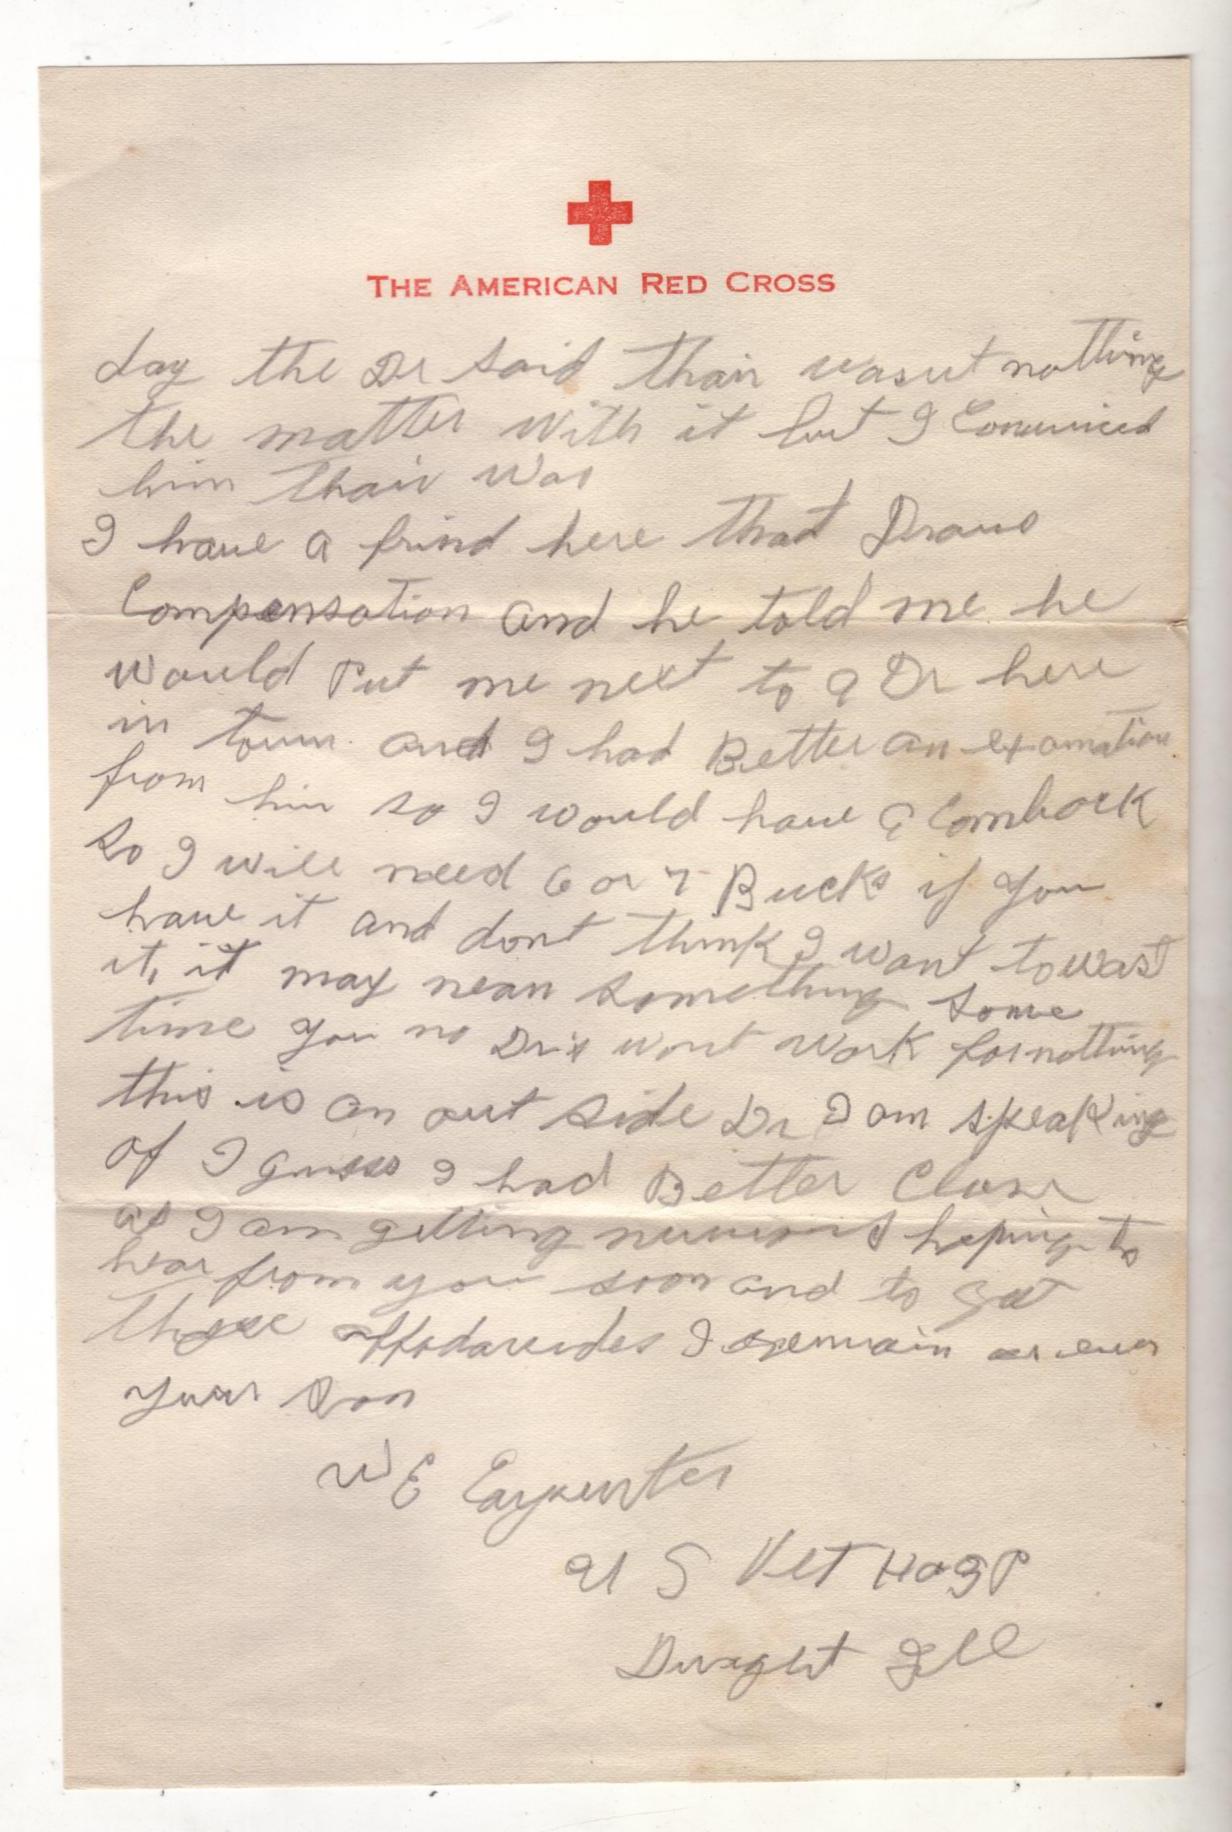 THE AMERICAN RED CROSS
day the Dr said thair wasnt nothing
the matter with it but I Convinced
him thair was
I have a frind here that Draws
Compensation and he told me he
would Put me next to a Dr here
in town and I had Better an examation
from him so I would have a Comback
so I will need 6 or 7 Bucks if you
have it and dont think I want to wast
it, it may mean something some
time you no Drs wont work for nothing
this is an out side Dr I am speaking
of I guess I had Better Close
as I am getting hoping to
hear from you soon and to get
these I remain as ever
your son
W E Carpenter
U S Vet HOSP
Dwight Ill